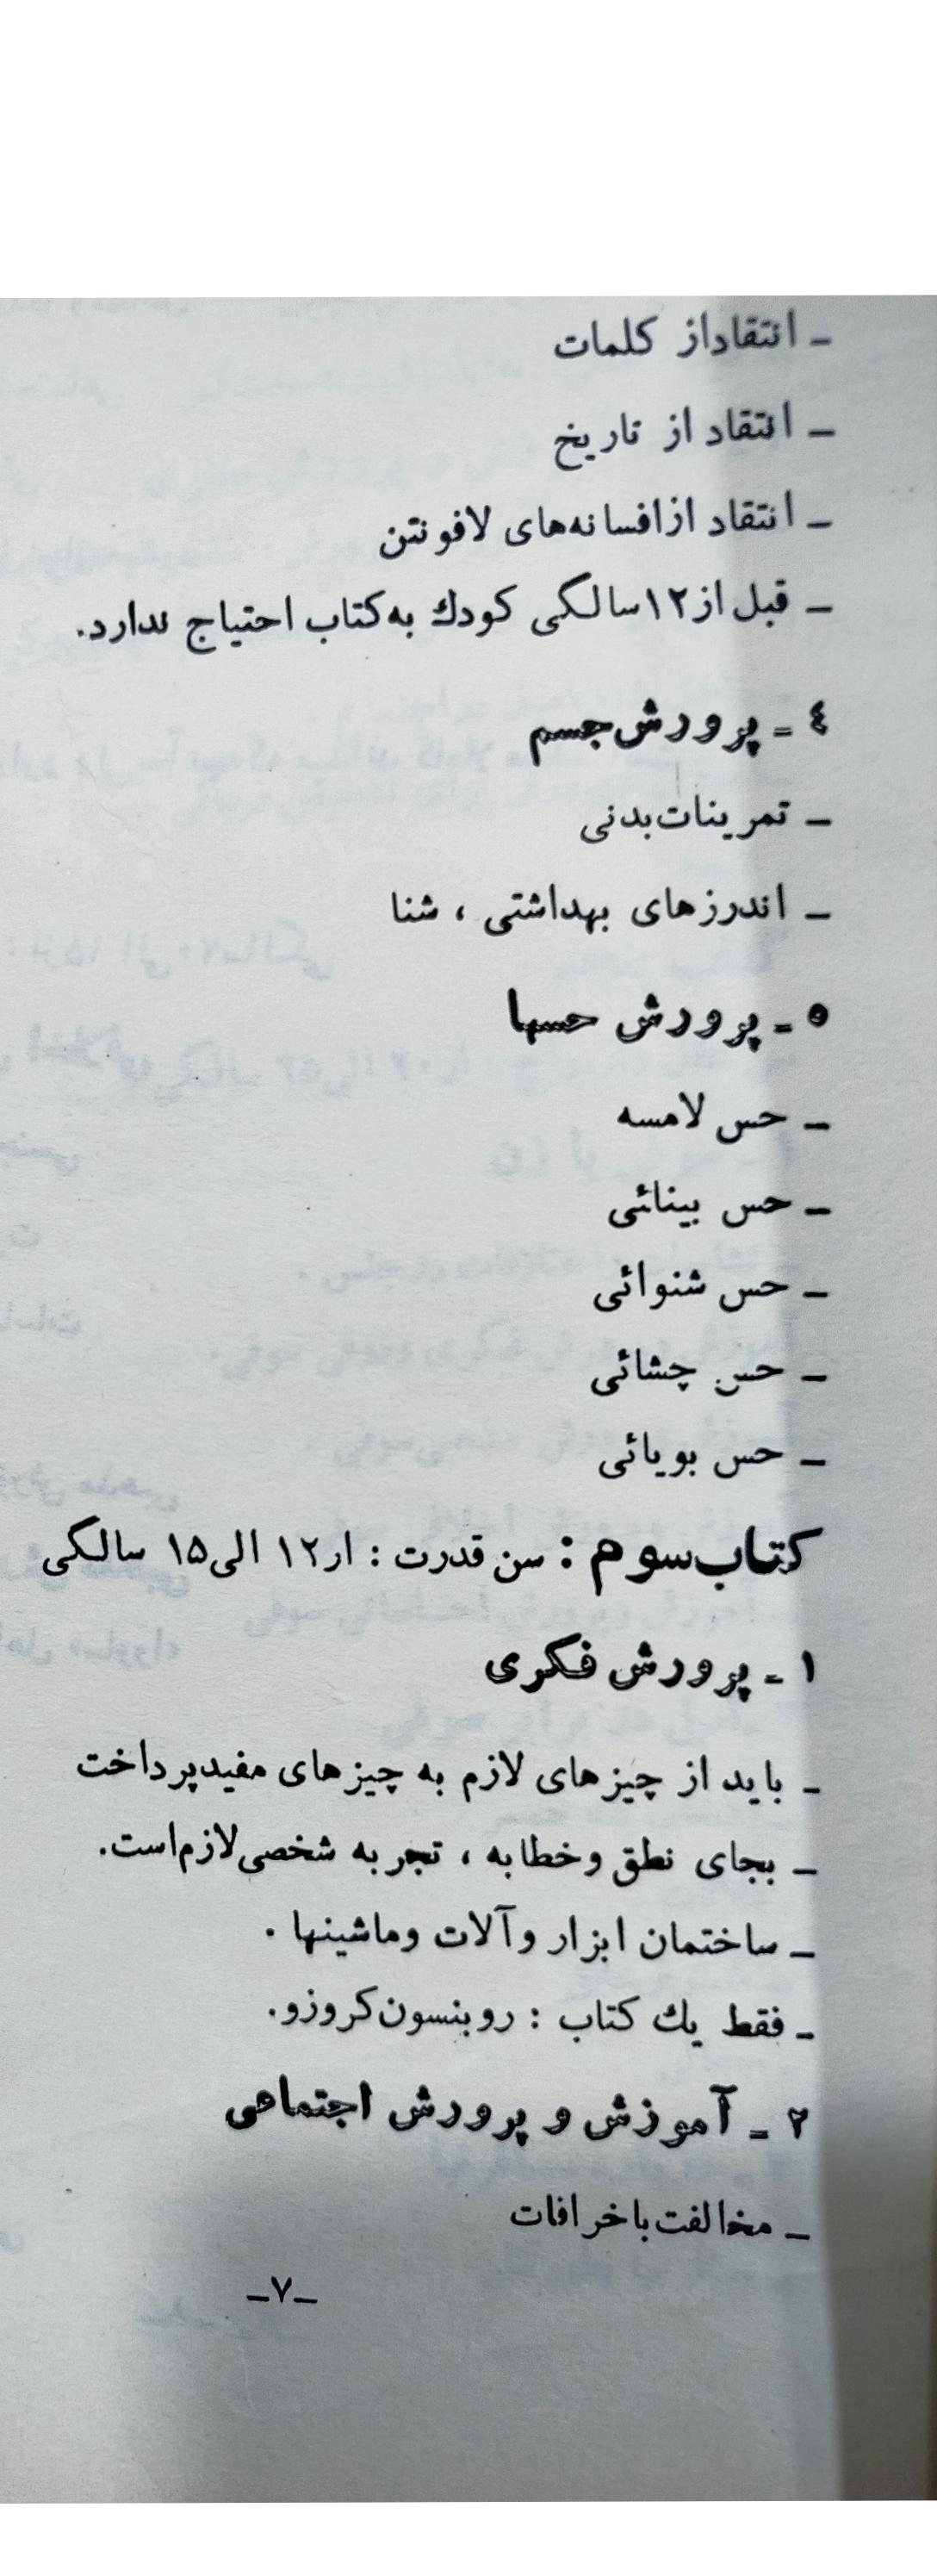 ـ انتقاداز کلمات
ـ انتقاد از تاریخ
ـ انتقاد ازافسانه‌های لافونتن
ـ قبل از۱۲سالگی کودك به‌کتاب احتیاج ندارد.
٤ ـ پرورش‌جسم
ـ تمرینات‌بدنی
ـ اندرزهای بهداشتی ، شنا
۵ ـ پرورش حسها
ـ حس لامسه
ـ حس بینائی
ـ حس شنوائی
ـ حس چشائی
ـ حس بویائی
کتاب‌سوم : سن قدرت : ار۱۲ الی۱۵ سالگی
۱ ـ پرورش فکری
ـ باید از چیزهای لازم به چیزهای مفیدپرداخت
ـ بجای نطق وخطابه ، تجربه شخصی‌لازم‌است.
ـ ساختمان ابزار وآلات وماشینها .
ـ فقط یك کتاب : روبنسون‌کروزو.
۲ ـ آموزش و پرورش اجتماعی
ـ مخالفت‌باخرافات
ـ۷ـ